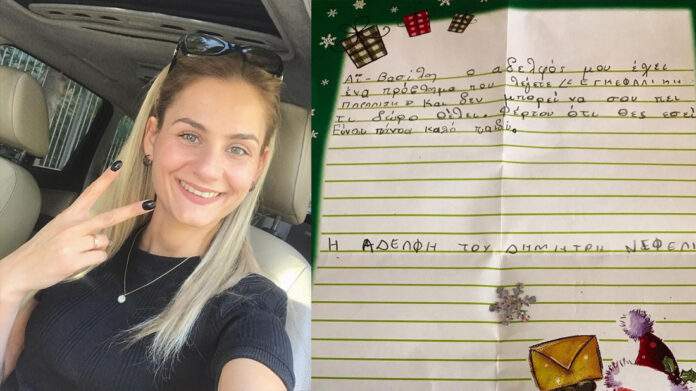 Αϊ-Βασίλη ο αδελφός μου έχει
ένα πρόβλημα που λέγετε ΕΓΚΕΦΑΛΙΚΗ
ΠΑΡΑΛΙΣΗ και δεν μπορεί να σου πει
τι δώρο θέλει. Φέρτου ότι θες εσύ
Είναι πάντα καλό παιδί.
Η ΑΔΕΛΦΗ ΤΟΥ ΔΗΜΗΤΡΗ ΝΕΦΕΛΗ